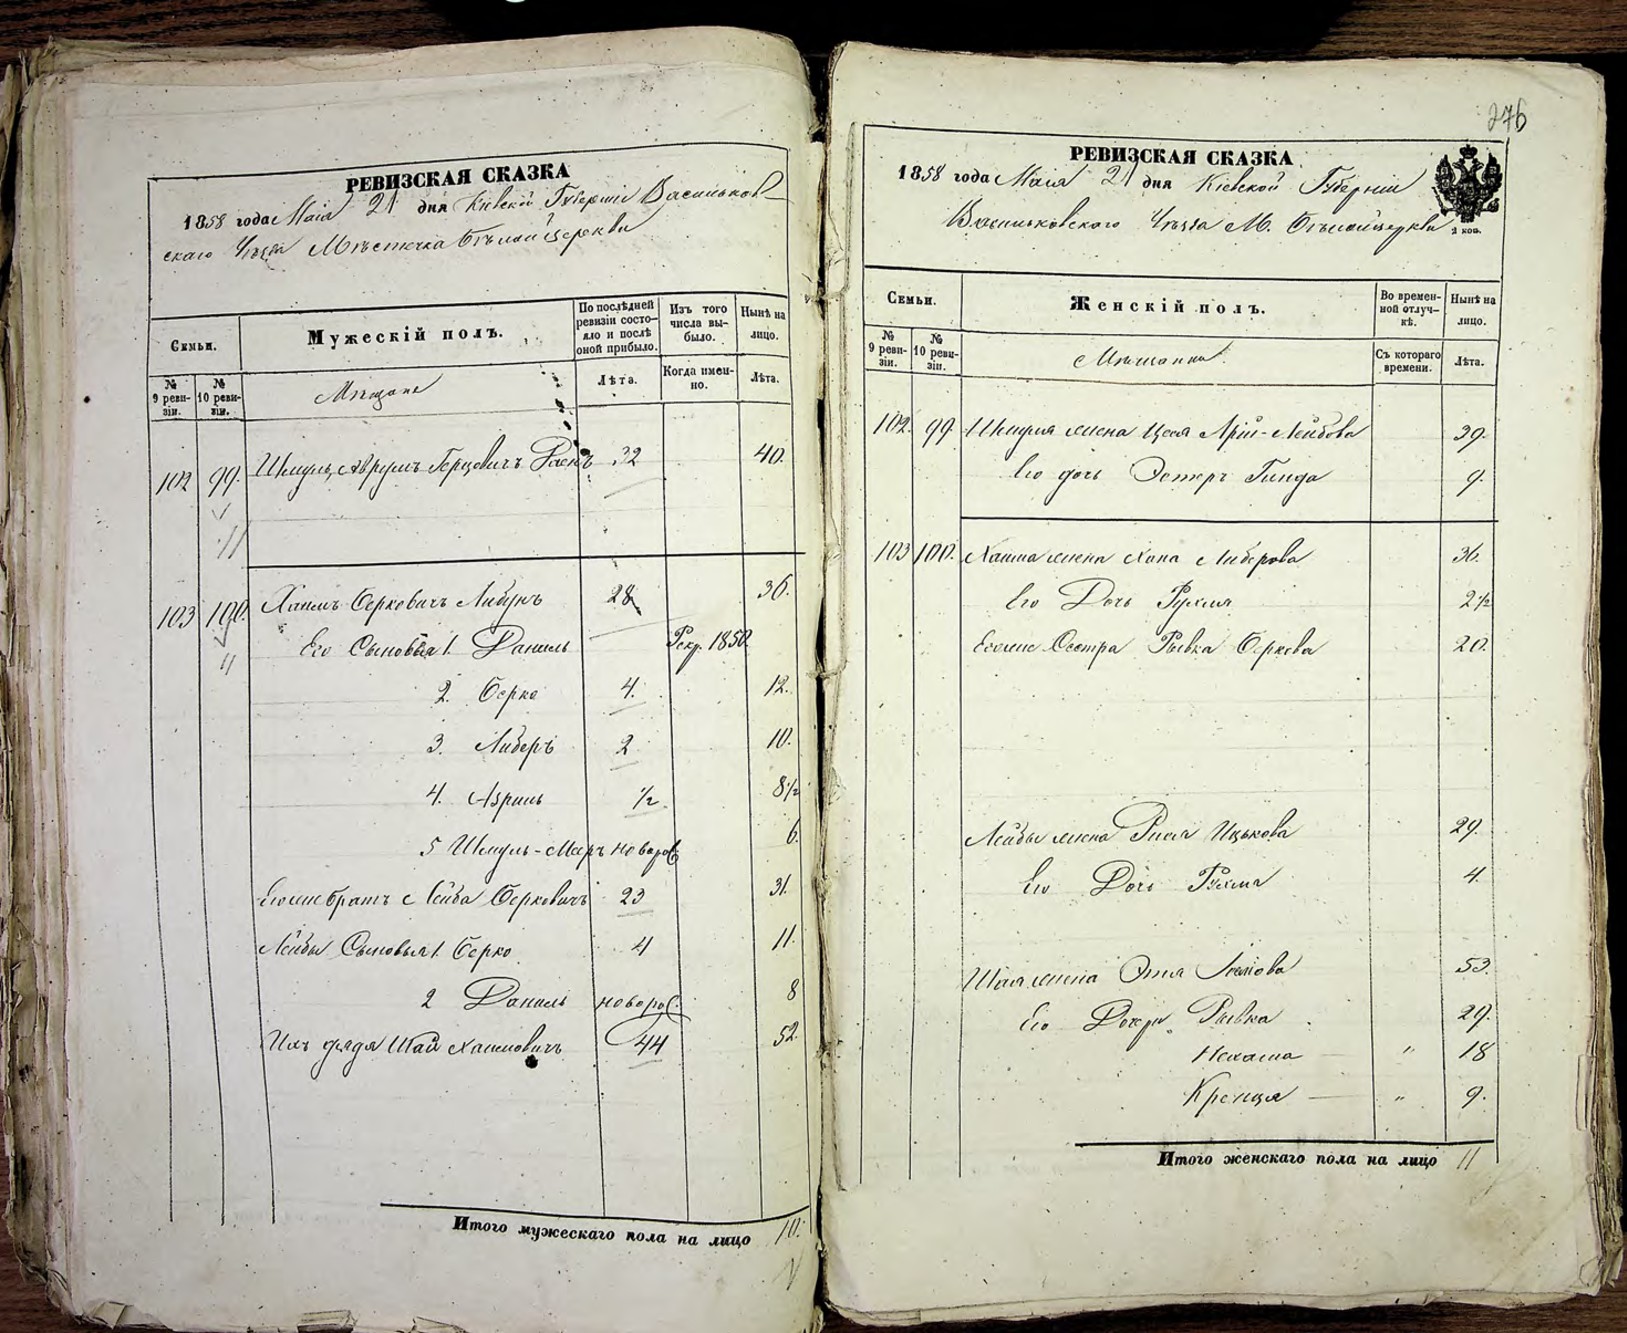 РЕВИЗСКАЯ СКАЗКА
1858 года Маія 21 дня Кіевской Губерніи Васильков-
скаго Уѣзда Мѣстечка Бѣлойцеркви
Семьи.
№ 9 ревизіи.
№ 10 ревизіи.
Мужескій полъ.
Мѣщане
По послѣдней ревизіи состояло и послѣ оной прибыло.
Лѣта.
Изъ того числа выбыло.
Когда именно.
Нынѣ на лицо.
Лѣта.
102 99. Шмуль Аврумъ Герцовичъ 32 40.
11
103 100. Хаимъ Берковичъ 28 36.
11
Его Сыновья 1. Даниль Рекр. 1850.
2. Берко 4. 12.
3. Либеръ 2 10.
4. Азриль 1/2. 8 1/2
5 Шмуль-Мееръ новорож 6.
Егоже братъ Лейба Берковичъ 23 31.
Лейбы Сыновья 1. Берко 4 11.
2 Даниль новорож. 8
Ихъ дядя Шая Хаимовичъ 44 52.
Итого мужескаго пола на лицо 10.
276
РЕВИЗСКАЯ СКАЗКА
1858 года Маія 21 дня Кіевской Губерніи
Васильковскаго Уѣзда М. Бѣлойцеркви
2 коп.
Семьи.
№ 9 ревизіи.
№ 10 ревизіи.
Женскій полъ.
Мѣщанки
Во временной отлучкѣ.
Съ котораго времени.
Нынѣ на лицо.
Лѣта.
102. 99 Шмуля жена Цеся Арій-Лейбова 39.
Его дочь Эстеръ Гинда 9.
103 100. Хаима жена Хана Либерова 36.
Его Дочь Рухля 2 1/2
Егоже Сестра Рывка Беркова 20.
Лейбы жена Рися Ицькова 29.
Его Дочь Рухля 4.
Шаи жена Этля 53.
Его Дочери Рывка 29.
Нехама " 18
Кренця " 9.
Итого женскаго пола на лицо 11